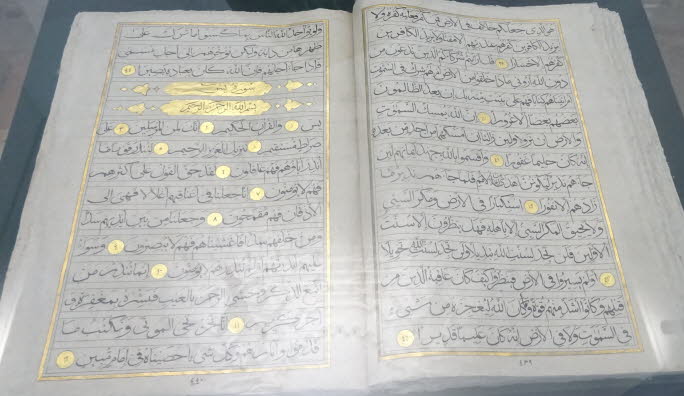 هو الذي جعلكم خلائف في الأرض فمن كفر فعليه كفره ولا
يزيد الكافرين كفرهم عند ربهم إلا مقتا ولا يزيد الكافرين
كفرهم إلا خسارا ٣٩ قل أرأيتم شركاءكم الذين تدعون من
دون الله أروني ماذا خلقوا من الأرض أم لهم شرك في السموت
أم آتيناهم كتابا فهم على بينت منه بل إن يعد الظالمون
بعضهم بعضا إلا غرورا ٤٠ إن الله يمسك السموت
والأرض أن تزولا ولئن زالتا إن أمسكهما من أحد من بعده
إنه كان حليما غفورا ٤١ وأقسموا بالله جهد أيمانهم لئن
جاءهم نذير ليكونن أهدى من إحدى الأمم فلما جاءهم نذير ما
زادهم إلا نفورا ٤٢ استكبارا في الأرض ومكر السيئ
ولا يحيق المكر السيئ إلا بأهله فهل ينظرون إلا سنت
الأولين فلن تجد لسنت الله تبديلا ولن تجد لسنت الله تحويلا
٤٣ أولم يسيروا في الأرض فينظروا كيف كان عاقبة الذين من
قبلهم وكانوا أشد منهم قوة وما كان الله ليعجزه من شيء
في السموت ولا في الأرض إنه كان عليما قديرا ٤٤
٤٣٩
ولو يؤاخذ الله الناس بما كسبوا ما ترك على
ظهرها من دابة ولكن يؤخرهم إلى أجل مسمى
فإذا جاء أجلهم فإن الله كان بعباده بصيرا ٤٥
سورة يس
بسم الله الرحمن الرحيم
يس ١ والقرآن الحكيم ٢ إنك لمن المرسلين ٣ على
صراط مستقيم ٤ تنزيل العزيز الرحيم ٥ لتنذر قوما ما
أنذر آباؤهم فهم غافلون ٦ لقد حق القول على أكثرهم
فهم لا يؤمنون ٧ إنا جعلنا في أعناقهم أغلالا فهي إلى
الأذقان فهم مقمحون ٨ وجعلنا من بين أيديهم سدا
ومن خلفهم سدا فأغشيناهم فهم لا يبصرون ٩ وسواء
عليهم أأنذرتهم أم لم تنذرهم لا يؤمنون ١٠ إنما تنذر من
اتبع الذكر وخشي الرحمن بالغيب فبشره بمغفرة و
أجر كريم ١١ إنا نحن نحي الموتى ونكتب ما
قدموا وآثارهم وكل شيء أحصيناه في إمام مبين ١٢
٤٤٠